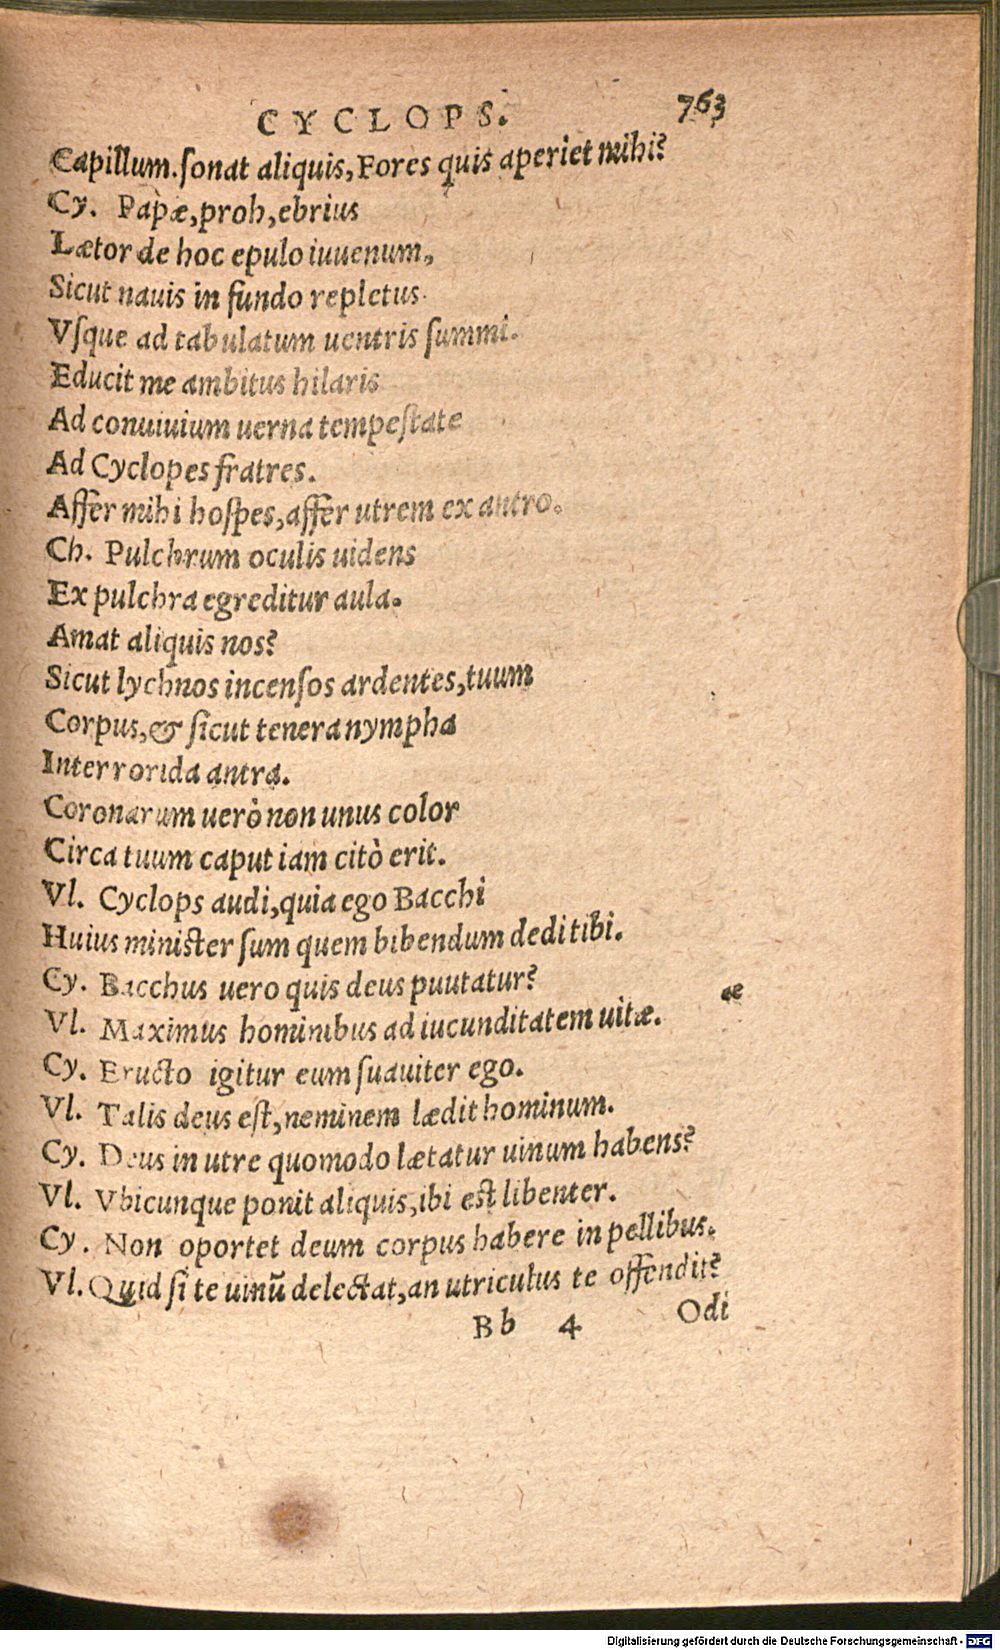 CYCLOPS. 763
Capillum. ſonat aliquis, Fores quis aperiet mihi?
Cy. Papæ, proh, ebrius
Lætor de hoc epulo iuuenum,
Sicut nauis in fundo repletus
Vſque ad tabulatum uentris ſummi.
Educit me ambitus hilaris
Ad conuiuium uerna tempeſtate
Ad Cyclopes fratres.
Affer mihi hoſpes, affer utrem ex antro.
Ch. Pulchrum oculis uidens
Ex pulchra egreditur aula.
Amat aliquis nos?
Sicut lychnos incenſos ardentes, tuum
Corpus, & ſicut tenera nympha
Inter rorida antra.
Coronarum uerò non unus color
Circa tuum caput iam citò erit.
Vl. Cyclops audi, quia ego Bacchi
Huius miniſter ſum quem bibendum dedi tibi.
Cy. Bacchus uero quis deus puutatur?
Vl. Maximus hominibus ad iucunditatem uitæ.
æ
Cy. Eructo igitur eum ſuauiter ego.
Vl. Talis deus eſt, neminem lædit hominum.
Cy. Deus in utre quomodo lætatur uinum habens?
Vl. Vbicunque ponit aliquis, ibi eſt libenter.
Cy. Non oportet deum corpus habere in pellibus.
Vl. Quid ſi te uinū delectat, an utriculus te offendit?
Bb 4 Odi
Digitalisierung gefördert durch die Deutsche Forschungsgemeinschaft - DFG